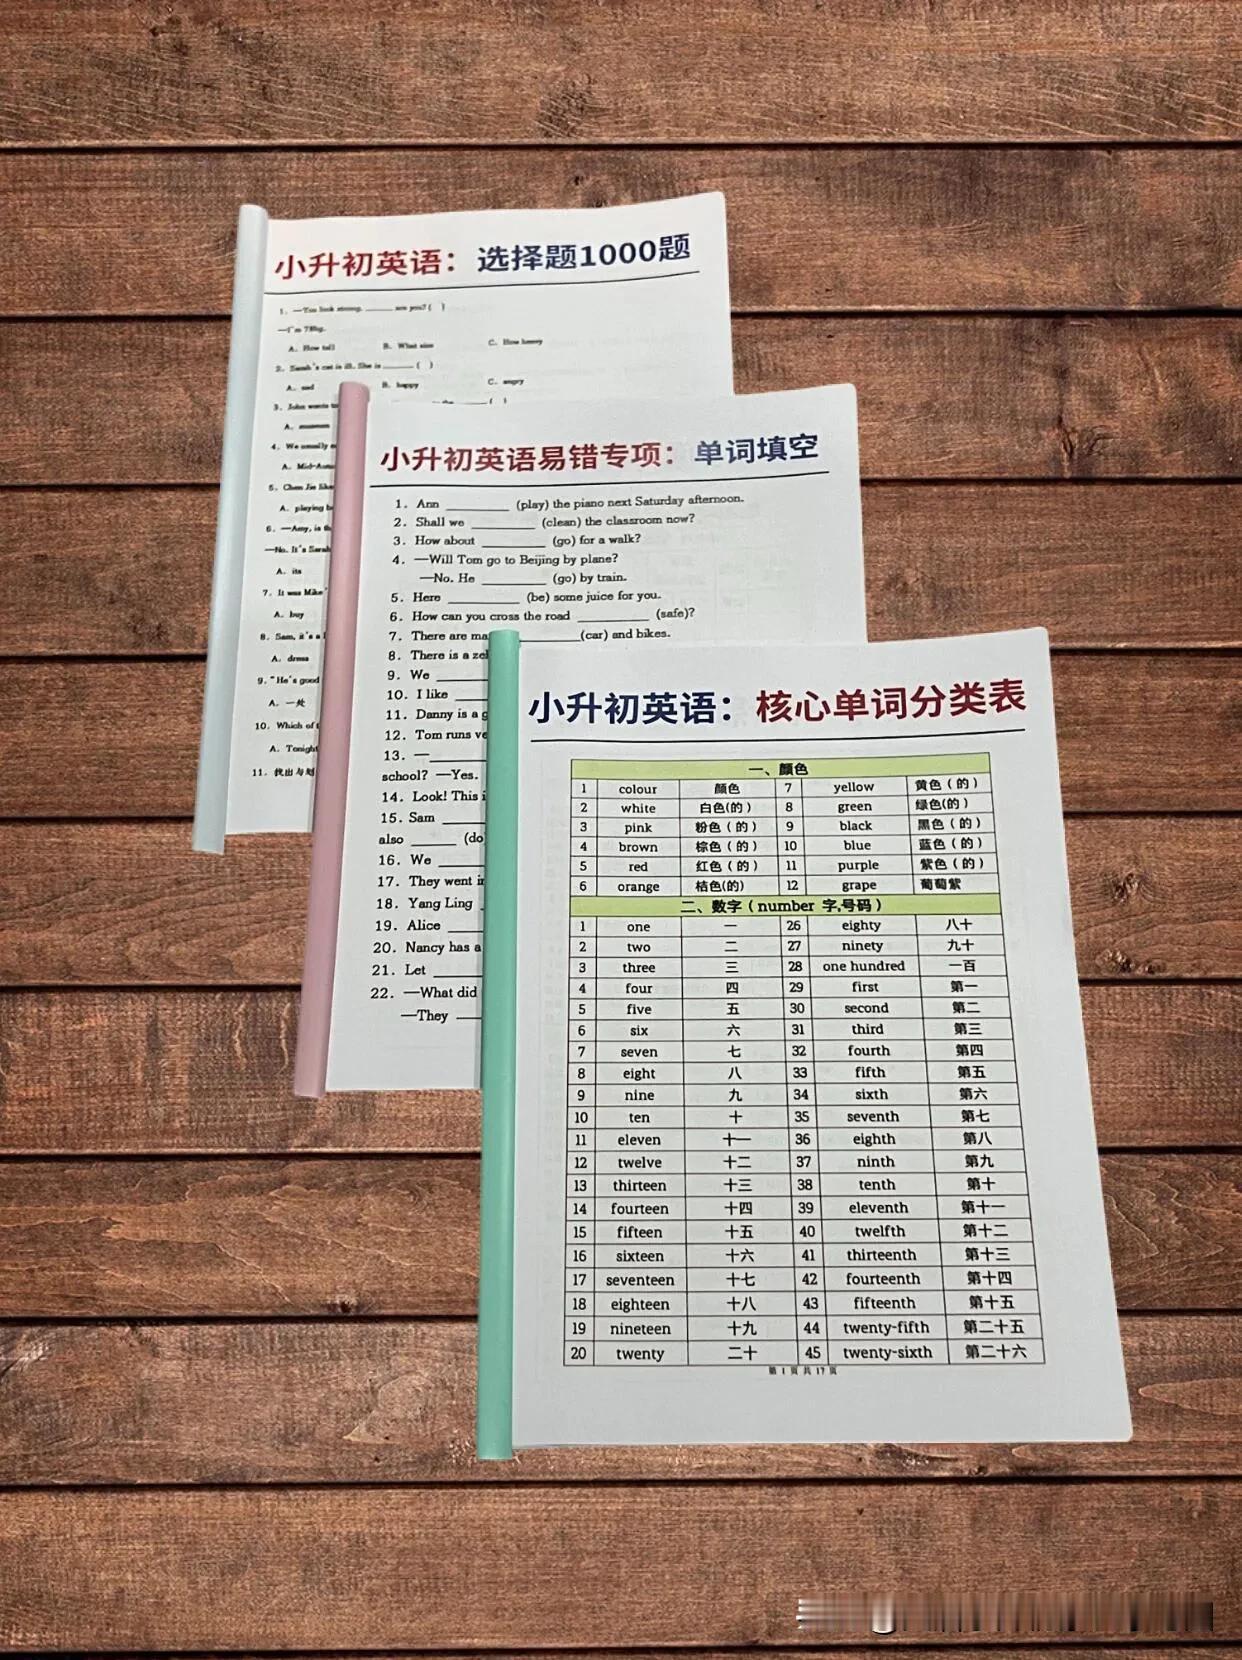 小升初英语：选择题1000题
1．—You look strong. ______ are you? (  )
—I'm 78kg.
A．How tall B．What size C．How heavy
2．Sarah's cat is ill. She is ______ (  )
A．sad B．happy C．angry
3．John wants to
A．museum
4．We usually
A．Mid-Autu
5．Chen Jie like
A．playing b
6．—Amy, is th
—No. It's Sarah
A．its
7．It was Mike'
A．buy
8．Sam, it's a
A．dress
9．"He's good
A．一处
10．Which of t
A．Tonight
11．找出与划
小升初英语易错专项：单词填空
1．Ann ________ (play) the piano next Saturday afternoon.
2．Shall we ________ (clean) the classroom now?
3．How about ________ (go) for a walk?
4．—Will Tom go to Beijing by plane?
—No. He ________ (go) by train.
5．Here ________ (be) some juice for you.
6．How can you cross the road ________ (safe)?
7．There are ma ________(car) and bikes.
8．There is a zeb
9．We ____
10．I like ____
11．Danny is a g
12．Tom runs ve
13．—____
school? —Yes.
14．Look! This i
15．Sam ____
also ____ (do
16．We ____
17．They went i
18．Yang Ling _
19．Alice ____
20．Nancy has a
21．Let ____
22．—What did
—They ____
小升初英语：核心单词分类表
一、颜色
1 colour 颜色 7 yellow 黄色（的）
2 white 白色(的) 8 green 绿色(的)
3 pink 粉色（的） 9 black 黑色（的）
4 brown 棕色（的） 10 blue 蓝色（的）
5 red 红色（的） 11 purple 紫色（的）
6 orange 桔色(的) 12 grape 葡萄紫
二、数字（number 字,号码）
1 one 一 26 eighty 八十
2 two 二 27 ninety 九十
3 three 三 28 one hundred 一百
4 four 四 29 first 第一
5 five 五 30 second 第二
6 six 六 31 third 第三
7 seven 七 32 fourth 第四
8 eight 八 33 fifth 第五
9 nine 九 34 sixth 第六
10 ten 十 35 seventh 第七
11 eleven 十一 36 eighth 第八
12 twelve 十二 37 ninth 第九
13 thirteen 十三 38 tenth 第十
14 fourteen 十四 39 eleventh 第十一
15 fifteen 十五 40 twelfth 第十二
16 sixteen 十六 41 thirteenth 第十三
17 seventeen 十七 42 fourteenth 第十四
18 eighteen 十八 43 fifteenth 第十五
19 nineteen 十九 44 twenty-fifth 第二十五
20 twenty 二十 45 twenty-sixth 第二十六
第 1 页 共 17 页